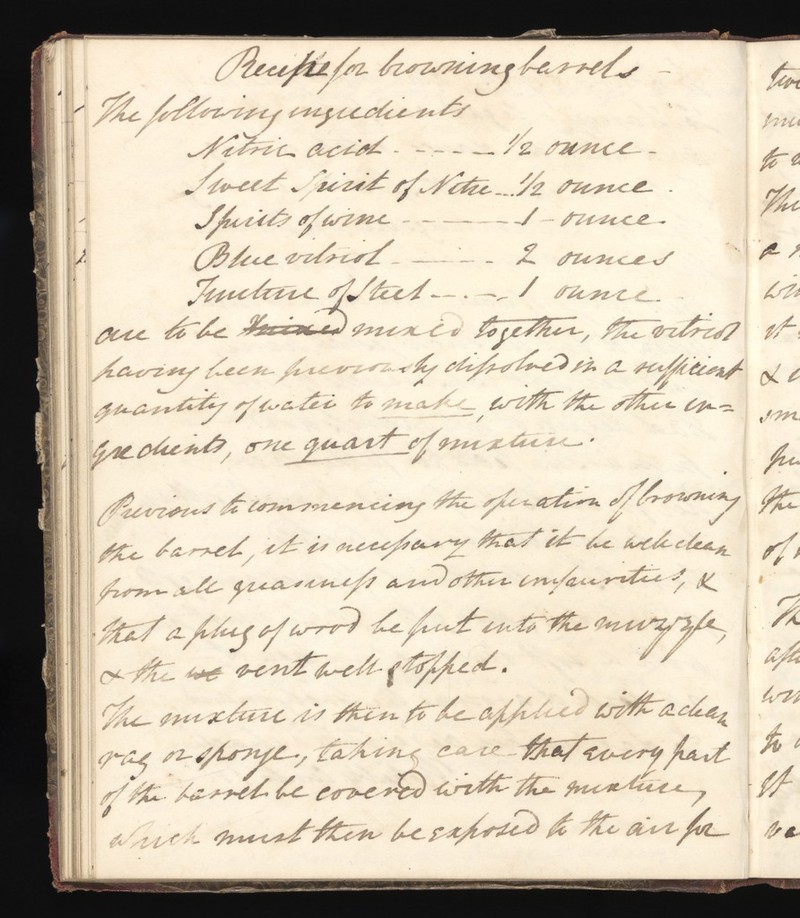 Recipe for browning barrels -
The following ingredients
Nitric acid - - - - - 1/2 ounce -
Sweet Spirit of Nitre - - 1/2 ounce -
Spirits of wine - - - - - - 1 - ounce -
Blue vitriol - - - - - 2 ounces
Tincture of Steel - - - - 1 ounce
are to be mixed together, the vitriol
having been previously dissolved in a sufficient
quantity of water to make, with the other in=
gredients, one quart of mixture.
Previous to commencing the operation of browning
the barrel, it is necessary that it be well clean
from all greasiness and other impurities, &
that a plug of wood be put into the muzzle,
& the vent well stopped.
The mixture is then to be applied with a clean
rag or sponge, taking care that every part
of the barrel be covered with the mixture,
which must then be exposed to the air for
two
to
The
a
it
&
the
of
to